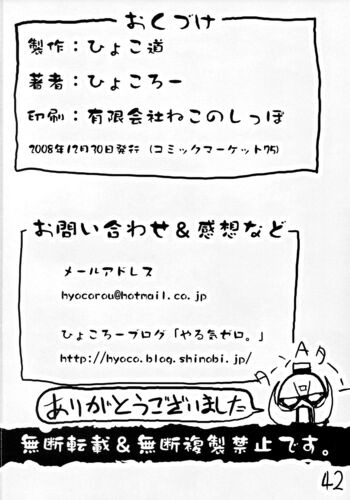 おくづけ
製作：ひょこ道
著者：ひょころー
印刷：有限会社ねこのしっぽ
2008年12月30日発行（コミックマーケット75）
お問い合わせ＆感想など
メールアドレス
hyocorou@hotmail.co.jp
ひょころーブログ「やる気ゼロ。」
http://hyoco.blog.shinobi.jp/
ターンAターン
ありがとうございました
無断転載＆無断複製禁止です。
42